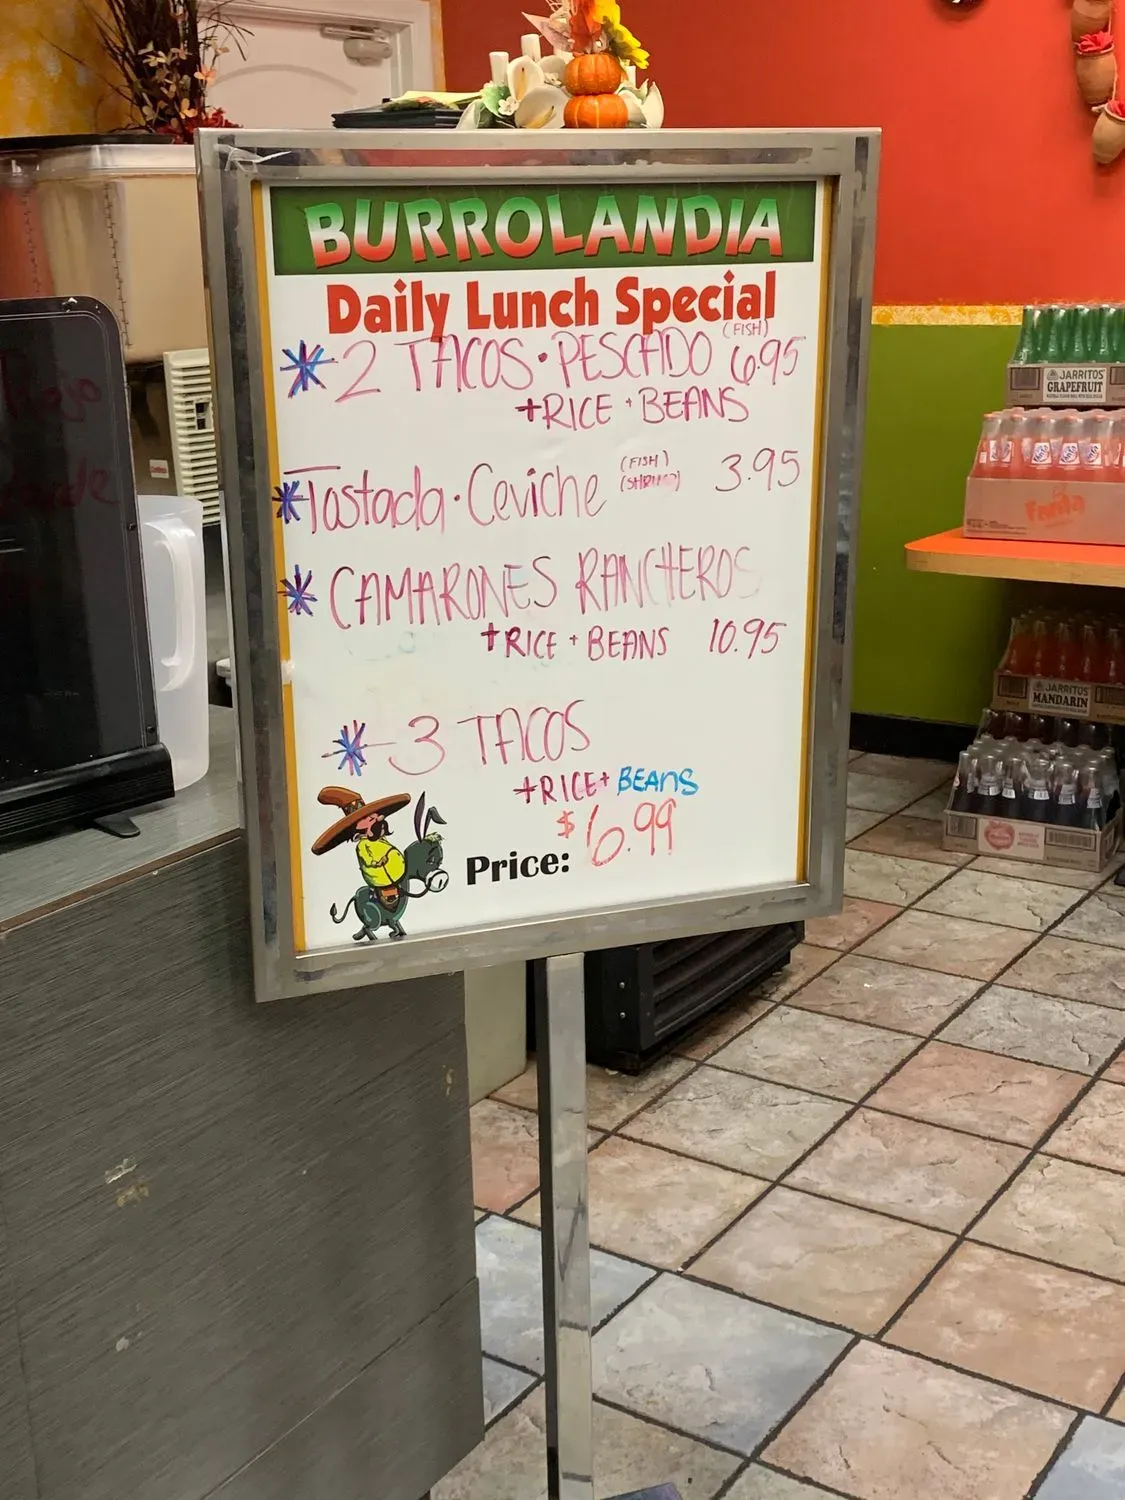 BURROLANDIA
Daily Lunch Special
(FISH)
* 2 TACOS • PESCADO 6.95
+RICE + BEANS
* Tostada • Ceviche (FISH) (SHRIMP) 3.95
* CAMARONES RANCHEROS
+RICE + BEANS 10.95
* 3 TACOS
+RICE+ BEANS
Price: $6.99
JARRITOS
GRAPEFRUIT
Fanta
JARRITOS
MANDARIN